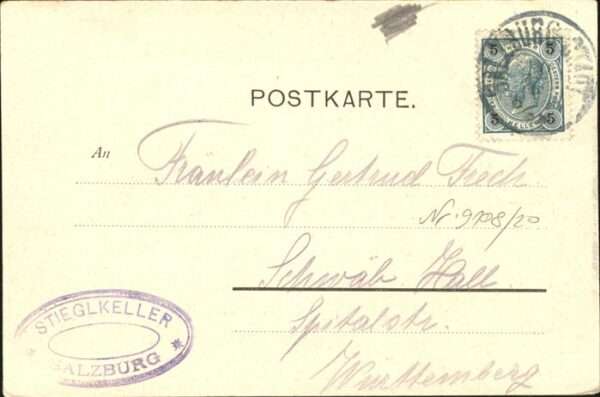 5 5
SALZBURG STADT
HELLER
5 5
POSTKARTE.
An
Fräulein Gertrud
Nr. 9108/20
Schwäb Hall
Spitalstr.
Württemberg
STIEGLKELLER
* SALZBURG *